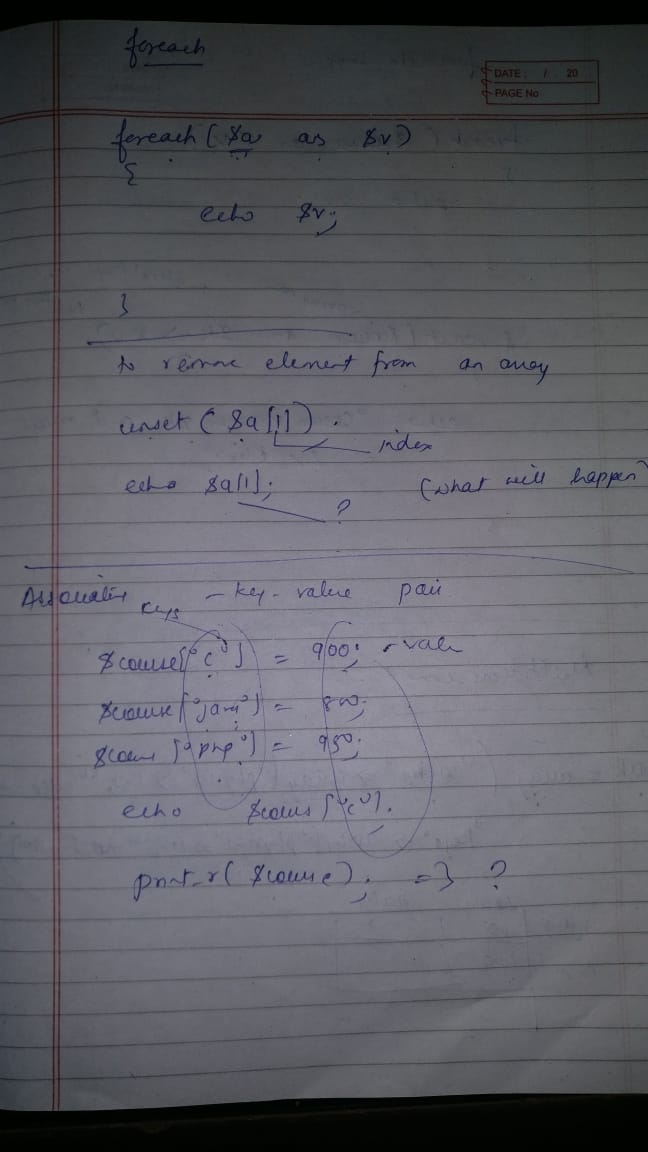 foreach
DATE: / 20
PAGE No
foreach ( $a as $v )
{
echo $v;
}
to remove element from an array
unset ( $a[1] ) .
index
echo $a[1]; (what will happen)
?
Associative - key - value pair
keys
$course["c"] = 900; value
$course["java"] = 800;
$course["php"] = 950;
echo $course["c"].
print_r( $course ); => ?